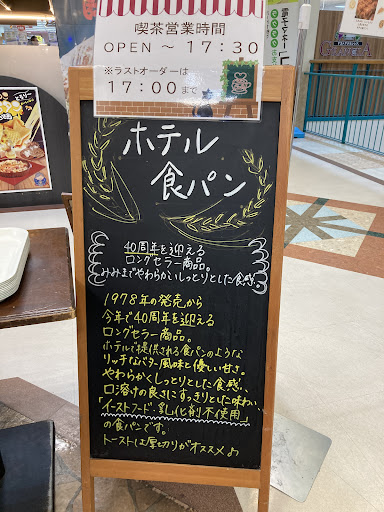 喫茶営業時間
OPEN ～ 17:30
※ラストオーダーは
17:00まで
ホテル
食パン
40周年を迎える
ロングセラー商品。
みみまでやわらかいしっとりとした食感。
1978年の発売から
今年で40周年を迎える
ロングセラー商品。
ホテルで提供される食パンのような
リッチなバター風味と優しい甘さ。
やわらかくしっとりとした食感、
口溶けの良さにすっきりとした味わい、
「イーストフード・乳化剤不使用」
の食パンです。
トーストは厚切りがオススメ♪